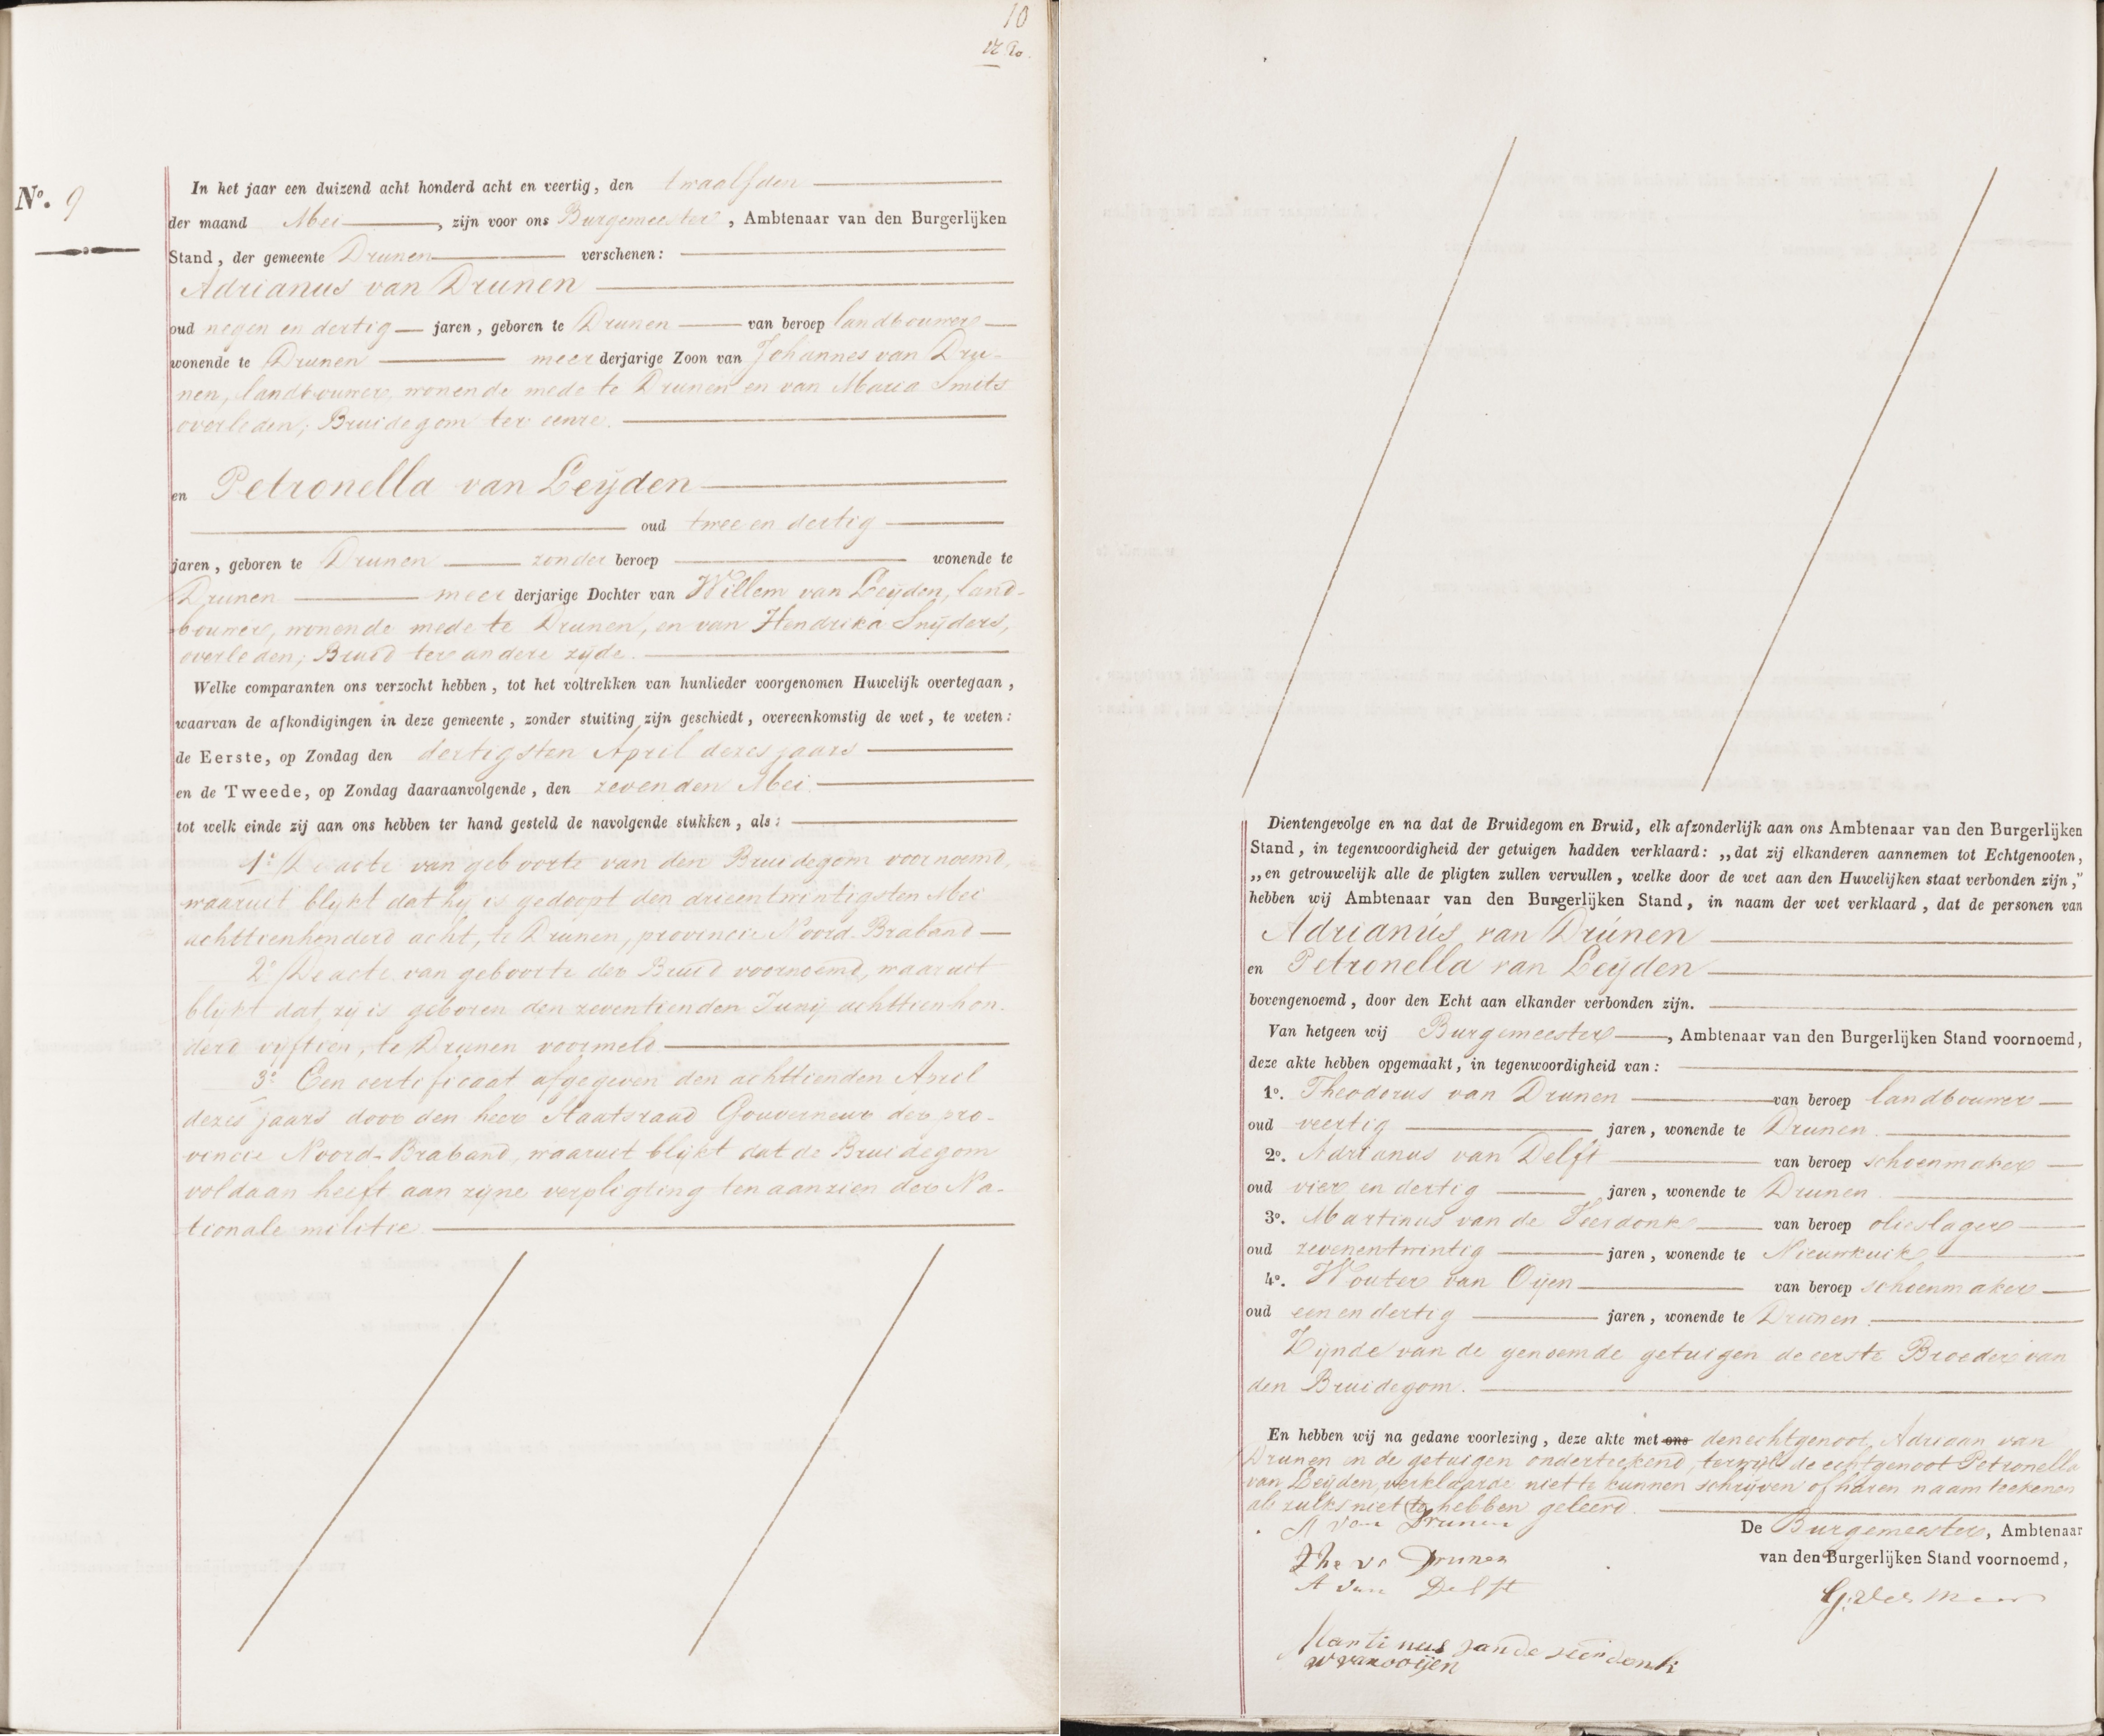 10
No. 9
In het jaar een duizend acht honderd acht en veertig, den twaalfden
der maand Mei, zijn voor ons Burgemeester, Ambtenaar van den Burgerlijken
Stand, der gemeente Drunen verschenen:
Adrianus van Drunen
oud negen en dertig jaren, geboren te Drunen van beroep landbouwer
wonende te Drunen meer derjarige Zoon van Johannes van Dru-
nen, landbouwer, wonende mede te Drunen en van Maria Smits
overleden; Bruidegom ter eenre.
en Petronella van Leijden
oud twee en dertig
jaren, geboren te Drunen zonder beroep wonende te
Drunen meer derjarige Dochter van Willem van Leijden, land-
bouwer, wonende mede te Drunen, en van Hendrika Snijders,
overleden; Bruid ter andere zijde.
Welke comparanten ons verzocht hebben, tot het voltrekken van hunlieder voorgenomen Huwelijk overtegaan,
waarvan de afkondigingen in deze gemeente, zonder stuiting zijn geschiedt, overeenkomstig de wet, te weten:
de Eerste, op Zondag den dertigsten April dezes jaars
en de Tweede, op Zondag daaraanvolgende, den zevenden Mei
tot welk einde zij aan ons hebben ter hand gesteld de navolgende stukken, als:
1o De acte van geboorte van den Bruidegom voornoemd,
waaruit blijkt dat hij is gedoopt den drieentwintigsten Mei
achttienhonderd acht, te Drunen, provincie Noord-Braband
2o De acte van geboorte der Bruid voornoemd, waaruit
blijkt dat zij is geboren den zeventienden Junij achttienhon-
derd vijftien, te Drunen voormeld
3o Een certificaat afgegeven den achttienden April
dezes jaars door den heer Staatsraad Gouverneur der pro-
vincie Noord-Braband, waaruit blijkt dat de Bruidegom
voldaan heeft aan zijne verpligting ten aanzien der Na-
tionale militie
Dientengevolge en na dat de Bruidegom en Bruid, elk afzonderlijk aan ons Ambtenaar van den Burgerlijken
Stand, in tegenwoordigheid der getuigen hadden verklaard: „dat zij elkanderen aannemen tot Echtgenooten,
„en getrouwelijk alle de pligten zullen vervullen, welke door de wet aan den Huwelijken staat verbonden zijn,”
hebben wij Ambtenaar van den Burgerlijken Stand, in naam der wet verklaard, dat de personen van
Adrianus van Drunen
en Petronella van Leijden
bovengenoemd, door den Echt aan elkander verbonden zijn.
Van hetgeen wij Burgemeester, Ambtenaar van den Burgerlijken Stand voornoemd,
deze akte hebben opgemaakt, in tegenwoordigheid van:
1o. Theodorus van Drunen van beroep landbouwer
oud veertig jaren, wonende te Drunen
2o. Adrianus van Delft van beroep schoenmaker
oud vier en dertig jaren, wonende te Drunen
3o. Martinus van de Veerdonk van beroep olieslager
oud zevenentwintig jaren, wonende te Nieuwkuik
4o. Wouter van Oijen van beroep schoenmaker
oud een en dertig jaren, wonende te Drunen
Zijnde van de genoemde getuigen de eerste Broeder van
den Bruidegom.
En hebben wij na gedane voorlezing, deze akte met ons den echtgenoot, Adriaan van
Drunen en de getuigen onderteekend, terwijl de echtgenoot Petronella
van Leijden, verklaarde niet te kunnen schrijven of haren naam teekenen
als zulks niet te hebben geleerd.
A van Drunen
De Burgemeester, Ambtenaar
van den Burgerlijken Stand voornoemd,
The vn Drunen
A van Delft
Martinus van de veerdonk
W van ooijen